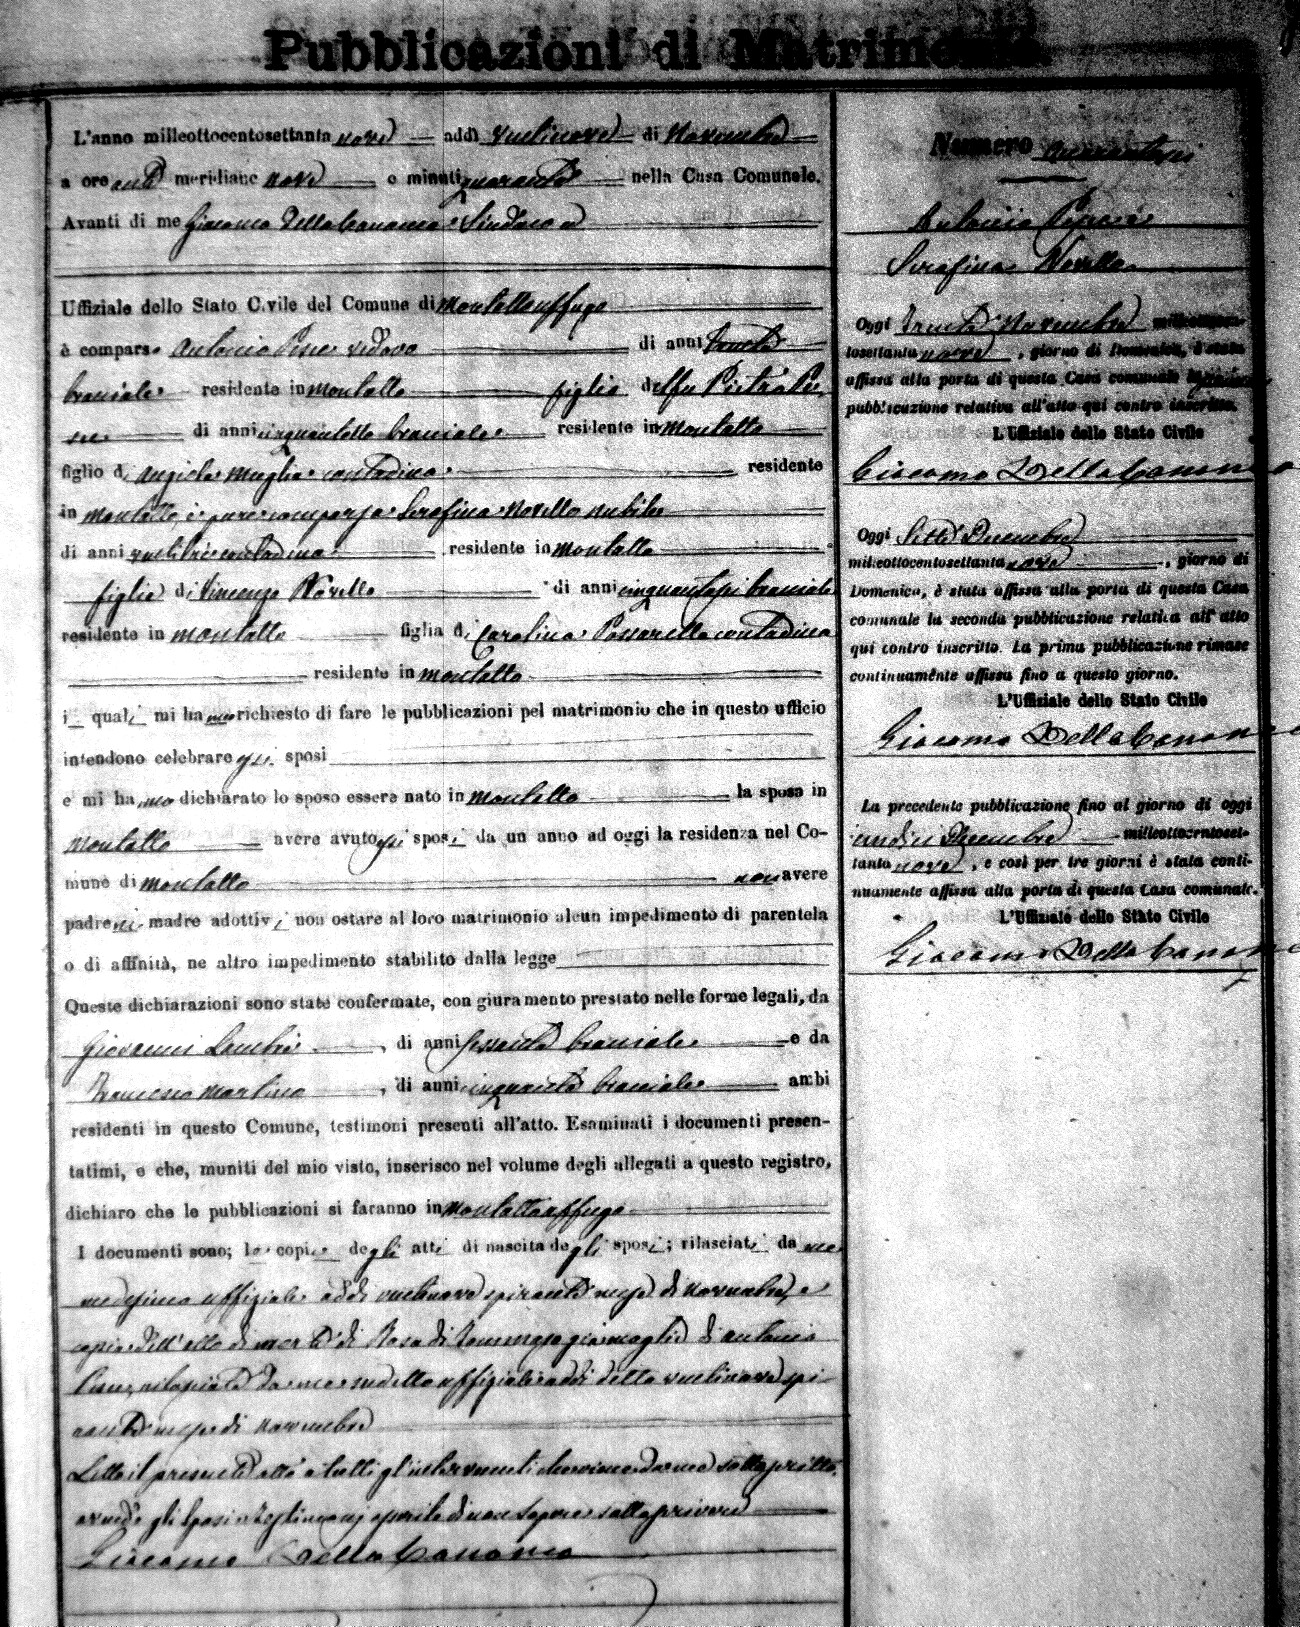 Pubblicazioni di Matrimonio
L'anno milleottocentosettanta nove addì ventinove di Novembre
a ore anti meridiane nove e minuti quaranta nella Casa Comunale.
Avanti di me Giacomo Della Cananea Sindaco
Uffiziale dello Stato Civile del Comune di Montaltouffugo
è comparso Antonio vedovo di anni trenta
bracciale residente in Montalto figlio del fu Pietro
di anni bracciale residente in Montalto
figlio di Angiola Maglia contadina residente
in Montalto, è pure comparsa Serafina Novello nubile
di anni contadina residente in Montalto
figlia di Vincenzo Novello di anni cinquantasei bracciale
residente in Montalto figlia di Carolina Passarello contadina
residente in Montalto
i quali mi hanno richiesto di fare le pubblicazioni pel matrimonio che in questo ufficio
intendono celebrare gli sposi
e mi hanno dichiarato lo sposo essere nato in Montalto la sposa in
Montalto avere avuto gli sposi da un anno ad oggi la residenza nel Co-
mune di Montalto non avere
padre nè madre adottivi non ostare al loro matrimonio alcun impedimento di parentela
o di affinità, ne altro impedimento stabilito dalla legge
Queste dichiarazioni sono state confermate, con giuramento prestato nelle forme legali, da
Giovanni di anni sessanta bracciale e da
Francesco Martino, di anni cinquanta bracciale ambi
residenti in questo Comune, testimoni presenti all'atto. Esaminati i documenti presen-
tatimi, e che, muniti del mio visto, inserisco nel volume degli allegati a questo registro,
dichiaro che le pubblicazioni si faranno in Montaltouffugo
I documenti sono; le copie degli atti di nascita degli sposi; rilasciati da me
medesimo uffiziale addì ventinove spirante mese di novembre, e
copia dell'atto di morte di Rosa di Tommaso già moglie di Antonio
rilasciata da me suddetto uffiziale addì detto ventinove spi-
rante mese di novembre
Letto il presente atto a tutti gl'intervenuti viene da me sottoscritto,
avendo gli sposi e testimonj asserito di non sapere sottoscrivere
Giacomo Della Cananea
Numero
Antonio
Serafina Novello
Oggi trenta Novembre milleottocen-
tosettanta nove, giorno di Domenica, è stata
affissa alla porta di questa Casa comunale la prima
pubblicazione relativa all'atto qui contro inscritto.
L'Uffiziale dello Stato Civile
Giacomo Della Cananea
Oggi sette Dicembre
milleottocentosettanta nove, giorno di
Domenica, è stata affissa alla porta di questa Casa
comunale la seconda pubblicazione relativa all'atto
qui contro inscritto. La prima pubblicazione rimase
continuamente affissa fino a questo giorno.
L'Uffiziale dello Stato Civile
Giacomo Della Cananea
La precedente pubblicazione fino al giorno di oggi
undici Dicembre milleottocentoset-
tanta nove, e così per tre giorni è stata conti-
nuamente affissa alla porta di questa Casa comunale.
L'Uffiziale dello Stato Civile
Giacomo Della Cananea